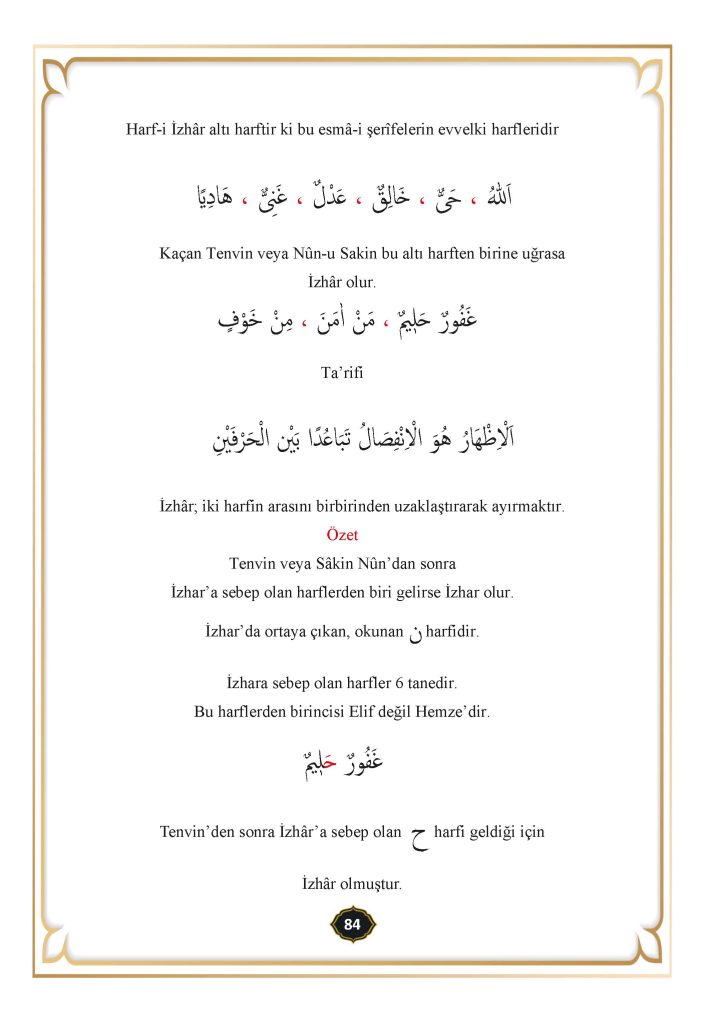 Harf-i İzhâr altı harftir ki bu esmâ-i şerîfelerin evvelki harfleridir
اَللهُ ، حَىٌّ ، خَالِقٌ ، عَدْلٌ ، غَنِىٌّ ، هَادِيًا
Kaçan Tenvin veya Nûn-u Sakin bu altı harften birine uğrasa
İzhâr olur.
غَفُورٌ حَلِيمٌ ، مَنْ اٰمَنَ ، مِنْ خَوْفٍ
Ta’rifi
اَلْاِظْهَارُ هُوَ الْاِنْفِصَالُ تَبَاعُدًا بَيْن الْحَرْفَيْنِ
İzhâr; iki harfin arasını birbirinden uzaklaştırarak ayırmaktır.
Özet
Tenvin veya Sâkin Nûn’dan sonra
İzhar’a sebep olan harflerden biri gelirse İzhar olur.
İzhar’da ortaya çıkan, okunan ن harfidir.
İzhara sebep olan harfler 6 tanedir.
Bu harflerden birincisi Elif değil Hemze’dir.
غَفُورٌ حَلِيمٌ
Tenvin’den sonra İzhâr’a sebep olan ح harfi geldiği için
İzhâr olmuştur.
84